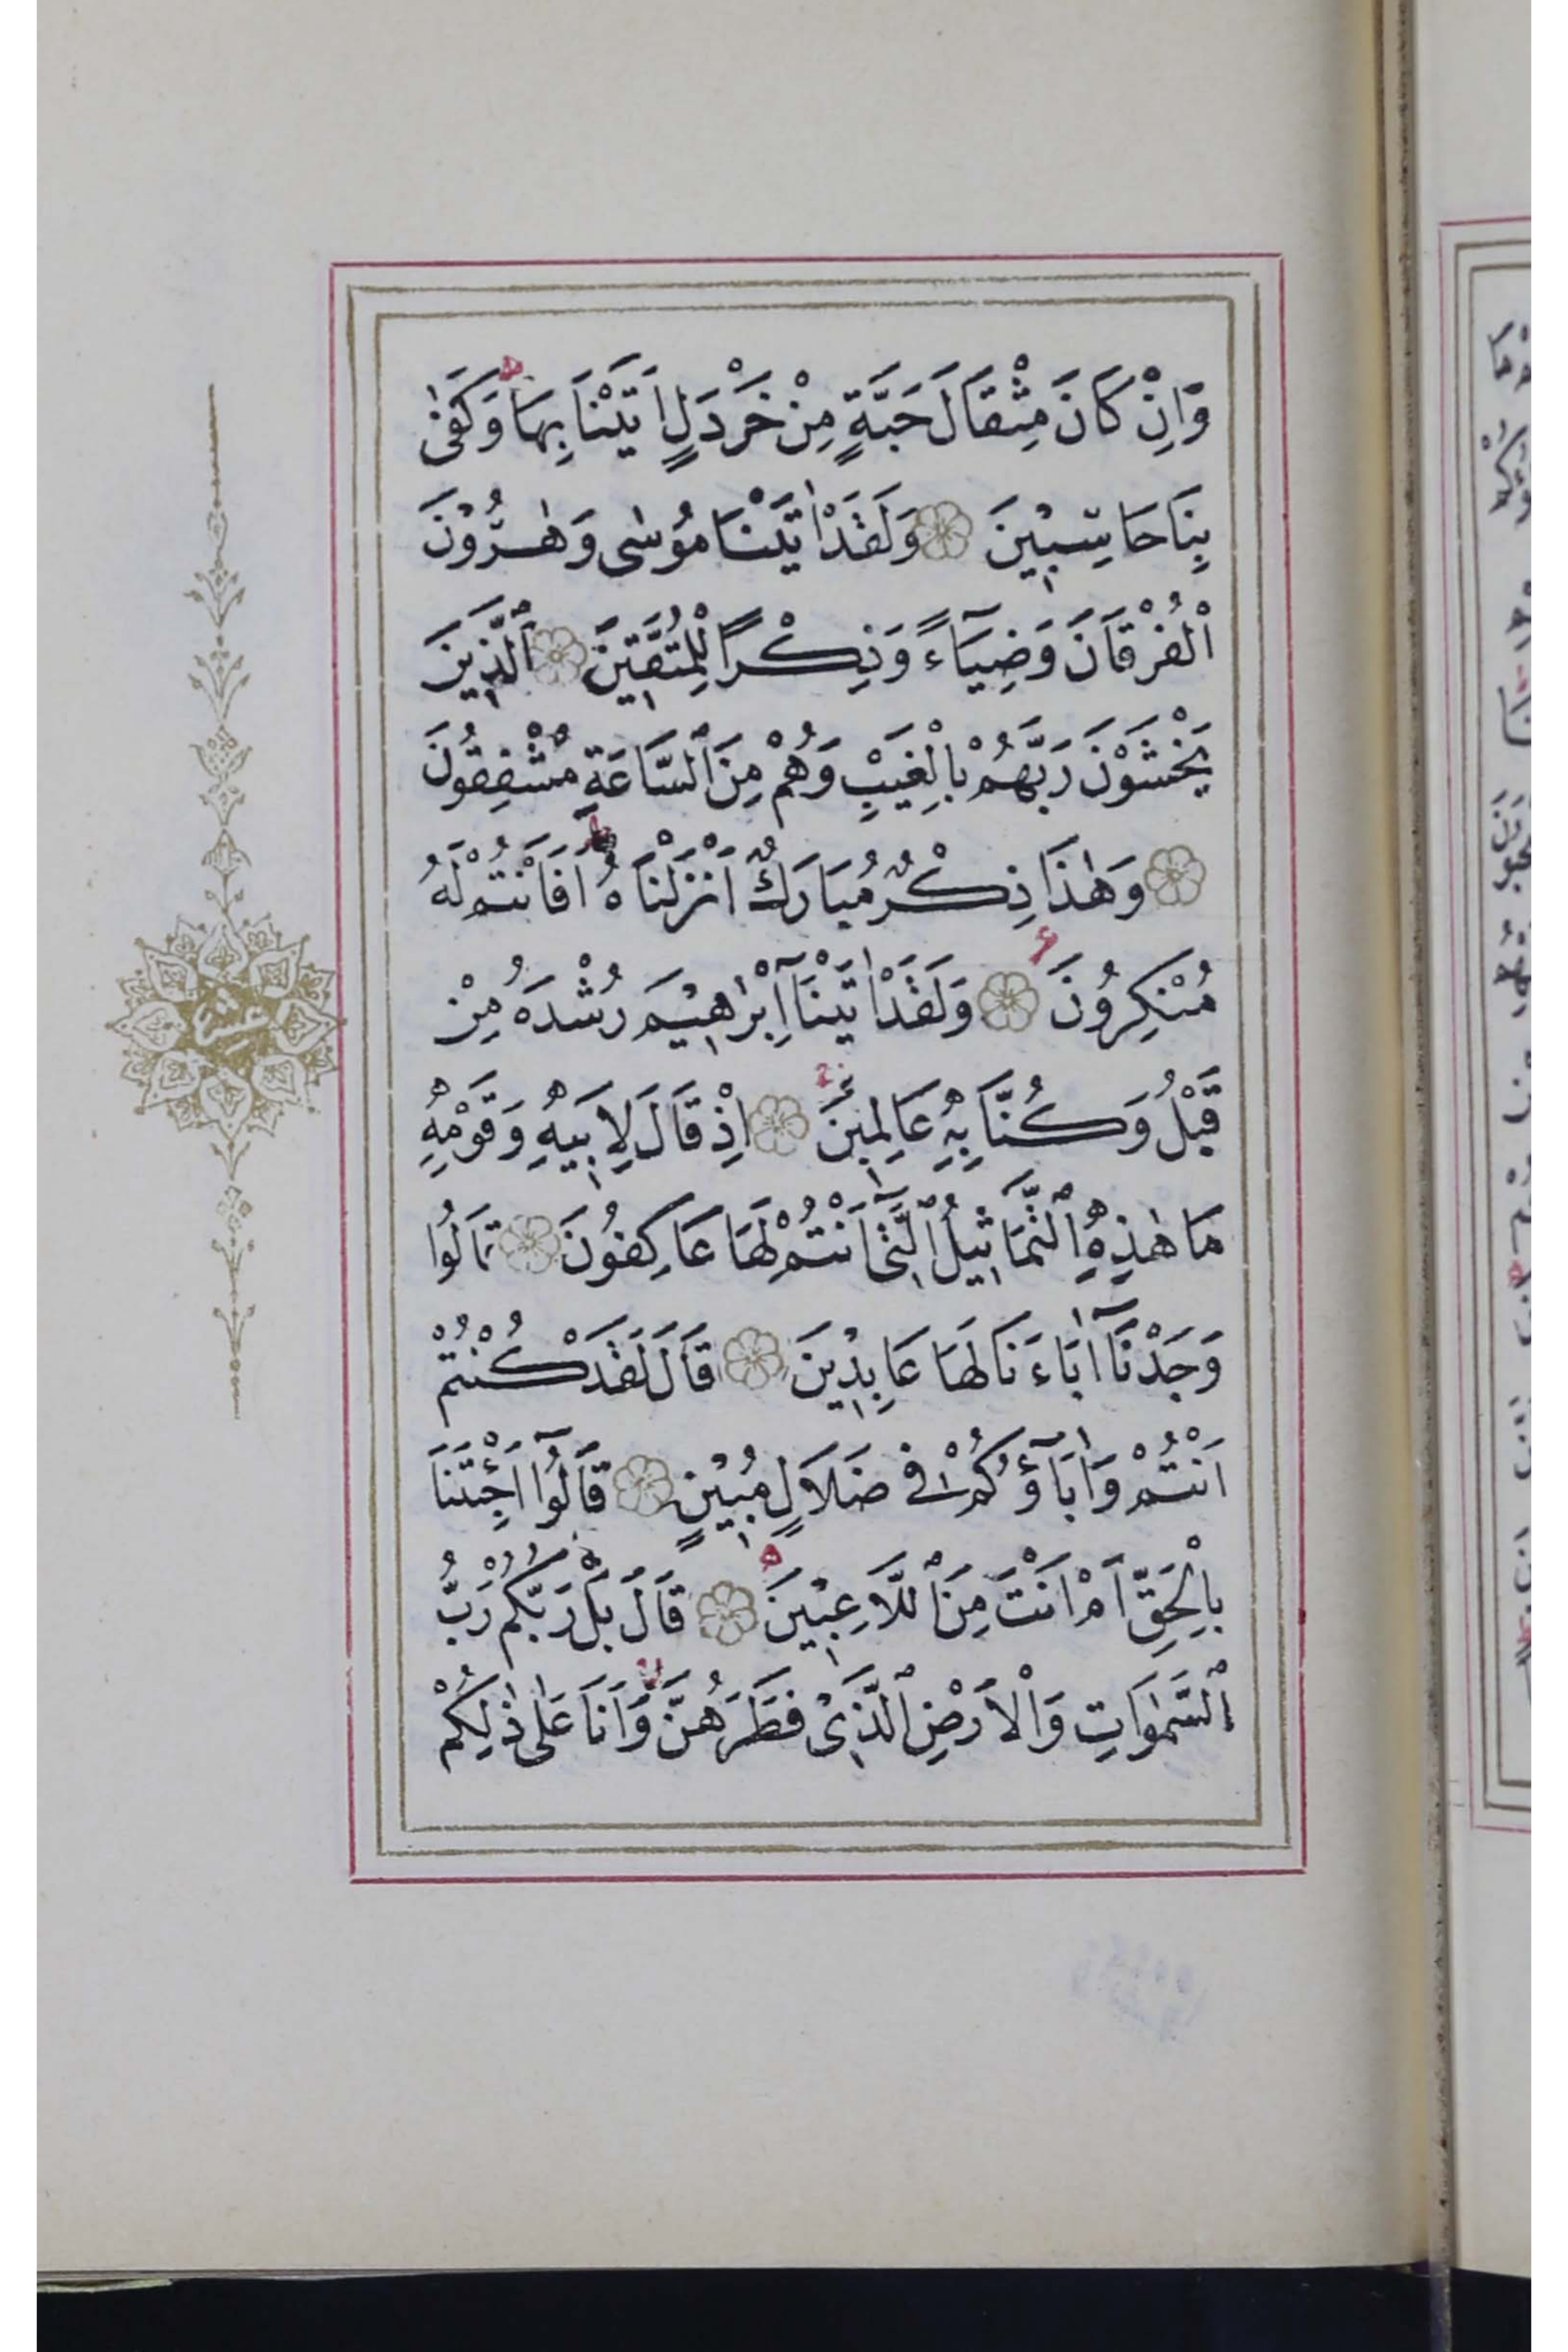 وَاِنْ كَانَ مِثْقَالَ حَبَّةٍ مِنْ خَرْدَلٍ اَتَيْنَا بِهَا وَكَفٰى
بِنَا حَاسِبٖينَ وَلَقَدْ اٰتَيْنَا مُوسٰى وَهٰرُوْنَ
الْفُرْقَانَ وَضِيَآءً وَذِكْرًا لِلْمُتَّقٖينَ اَلَّذٖينَ
يَخْشَوْنَ رَبَّهُمْ بِالْغَيْبِ وَهُمْ مِنَ السَّاعَةِ مُشْفِقُونَ
وَهٰذَا ذِكْرٌ مُبَارَكٌ اَنْزَلْنَاهُ اَفَاَنْتُمْ لَهُ
مُنْكِرُونَ وَلَقَدْ اٰتَيْنَآ اِبْرٰاهٖيمَ رُشْدَهُ مِنْ
قَبْلُ وَكُنَّا بِهٖ عَالِمٖينَ اِذْ قَالَ لِاَبٖيهِ وَقَوْمِهٖ
مَا هٰذِهِ التَّمَاثٖيلُ الَّتٖٓى اَنْتُمْ لَهَا عَاكِفُونَ قَالُوا
وَجَدْنَآ اٰبَاءَنَا لَهَا عَابِدٖينَ قَالَ لَقَدْ كُنْتُمْ
اَنْتُمْ وَاٰبَآؤُكُمْ فٖى ضَلَالٍ مُبٖينٍ قَالُوٓا اَجِئْتَنَا
بِالْحَقِّ اَمْ اَنْتَ مِنَ اللَّاعِبٖينَ قَالَ بَلْ رَبُّكُمْ رَبُّ
السَّمٰوَاتِ وَالْاَرْضِ الَّذٖى فَطَرَهُنَّ وَاَنَا عَلٰى ذٰلِكُمْ